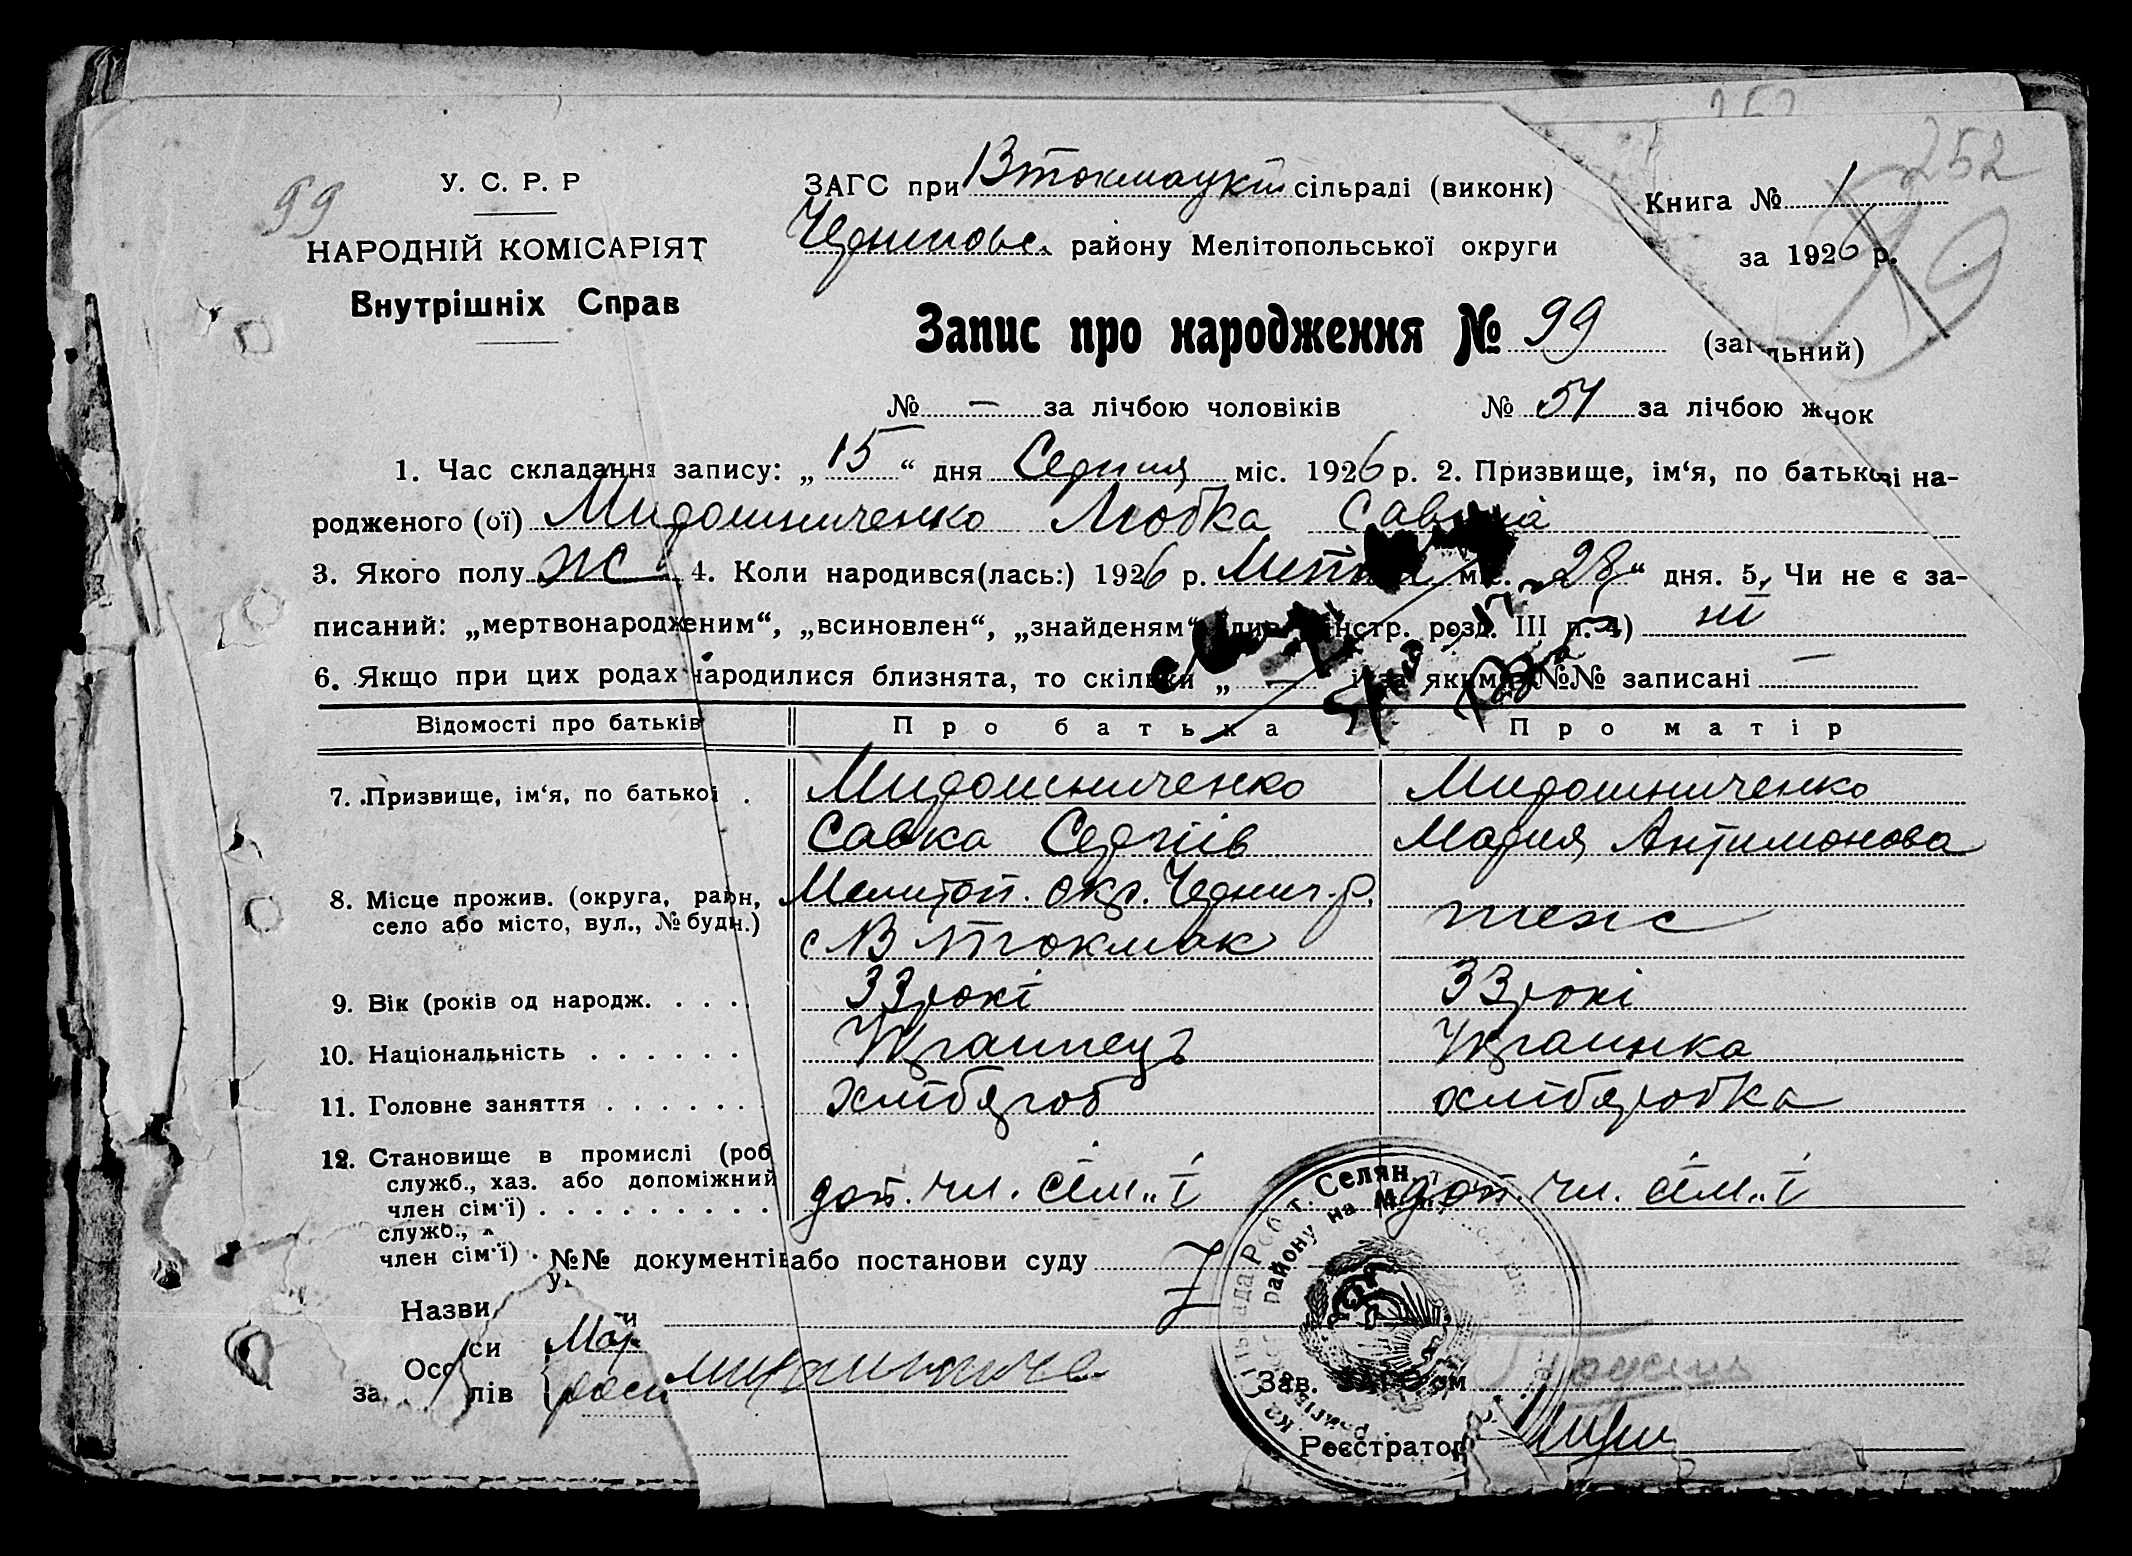 252
99
У. С. Р. Р
НАРОДНІЙ КОМІСАРІЯТ
Внутрішніх Справ
ЗАГС при Втокмацкій сільраді (виконк)
Чернигове. району Мелітопольської округи
Книга № 1
за 1926 р.
252
99
Запис про народження № 99 (заг льний)
№ — за лічбою чоловіків № 51 за лічбою ж чок
1. Час складання запису: „15“ дня Серпня міс. 1926 р. 2. Призвище, ім‘я, по батькові на-
родженого (ої) Мирошниченко Любка
3. Якого полу Ж 4. Коли народився(лась:) 1926 р. міс. 28“ дня. 5. Чи не є за-
писаний: „мертвонародженим“, „всиновлен“, „знайденям“ інстр. розд. III п. 4) ні
6. Якщо при цих родах народилися близнята, то скільки „ — і за якими №№ записані —
Відомості про батьків Про батька Про матір
7. Призвище, ім‘я, по батькові . Мирошниченко Мирошниченко
Савка Сергіів Мария Антимонова
8. Місце прожив. (округа, район, Мелитоп. окр. Черниг. р.
село або місто, вул., № будн.) с В Токмак теж
9. Вік (років од народж. . . . . 33 рокі 33 рокі
10. Національність . . . . . . Украінець Украинка
11. Головне заняття . . . . . . хлібороб хліборобка
12. Становище в промислі (роб
служб., хаз. або допоміжний
член сім‘ї) . . . . . . . . . доп. чл. сім„ї доп. чл. сім„ї
служб.,
член сім‘ї) . №№ документів або постанови суду
Назви
Осо си
за лів
Мар
Зав. ЗАГС‘ом
Реєстратор